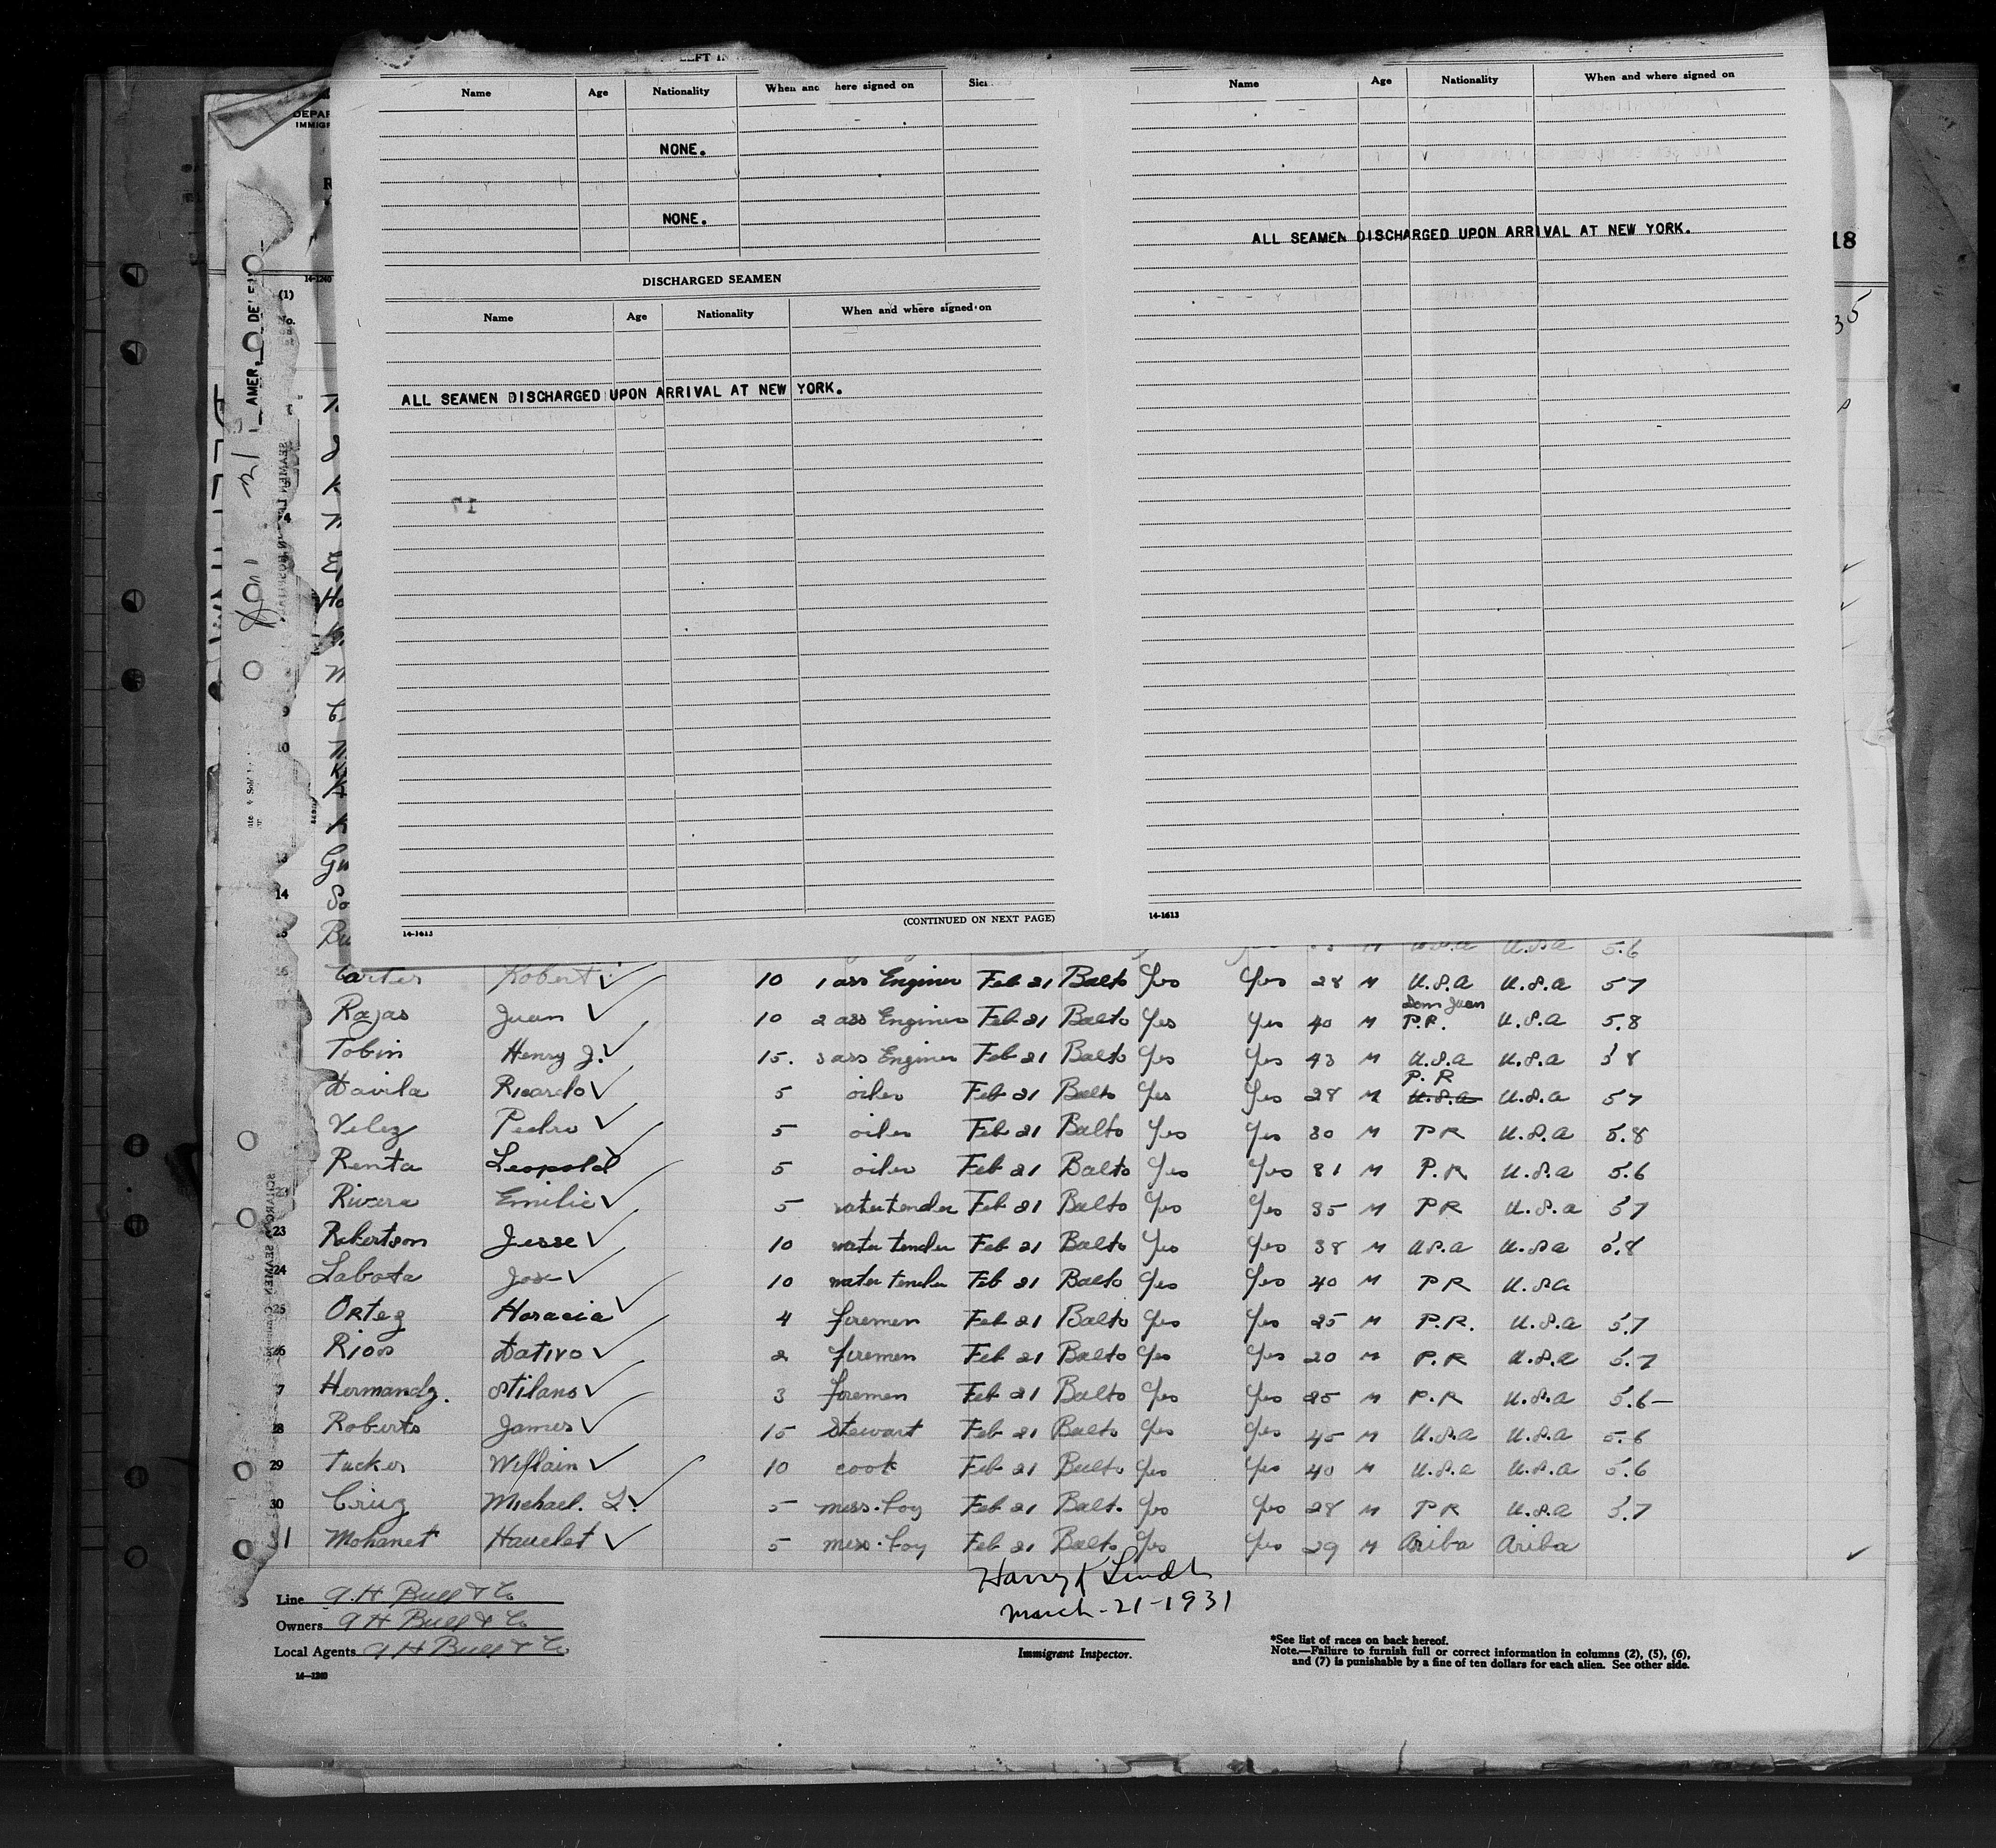 Name Age Nationality When and here signed on
NONE.
NONE.
DISCHARGED SEAMEN
Name Age Nationality When and where signed on
ALL SEAMEN DISCHARGED UPON ARRIVAL AT NEW YORK.
(CONTINUED ON NEXT PAGE)
14-1613
Name Age Nationality When and where signed on
ALL SEAMEN DISCHARGED UPON ARRIVAL AT NEW YORK.
14-1613
18
35
DEPAR
IMMIGR
14-1240
(1)
No.
AMER.
10
Ho
13 Gu
14 So
Bu M U.S.A 5.6
16 Carter Robert 10 1 ass Enginer Feb 21 Balto Yes Yes 28 M U.S.A U.S.A 57
Rajas Juan 10 2 ass Enginer Feb 21 Balto Yes Yes 40 M San Juan P.R. U.S.A 5.8
Tobin Henry J. 15. 3 ass Enginer Feb 21 Balto Yes Yes 43 M U.S.A U.S.A 58
Davila Ricardo 5 oiler Feb 21 Balto Yes Yes 28 M P.R U.S.A U.S.A 57
Velez Pedro 5 oiler Feb 21 Balto Yes Yes 30 M PR U.S.A 5.8
Renta Leopold 5 oiler Feb 21 Balto Yes Yes 31 M P.R U.S.A 5.6
Rivera Emilie 5 watertender Feb 21 Balto Yes Yes 35 M PR U.S.A 57
23 Robertson Jesse 10 water tender Feb 21 Balto Yes Yes 38 M U.S.A U.S.A 5.8
24 Labota Jose 10 water tender Feb 21 Balto Yes Yes 40 M PR U.S.A
25 Ortez Horacia 4 firemen Feb 21 Balto Yes Yes 25 M P.R. U.S.A 5.7
26 Rios Dativo 2 firemen Feb 21 Balto Yes Yes 20 M P.R U.S.A 5.7
7 Hermandz. Stilano 3 firemen Feb 21 Balto Yes Yes 25 M P.R U.S.A 5.6-
28 Roberts James 15 Stewart Feb 21 Balto Yes Yes 45 M U.S.A U.S.A 5.6
29 Tucker Willain 10 cook Feb 21 Balto Yes Yes 40 M U.S.A U.S.A 5.6
30 Cruz Michael. L. 5 mess.boy Feb 21 Balt. Yes Yes 28 M PR U.S.A 5.7
31 Mohanet Hauelet 5 mess.boy Feb 21 Balto Yes Yes 29 M Ariba Ariba
Line A.H Bull & Co
Owners A H Bull & Co
Local Agents A H Bull & Co
14-1240
Harry K Lindt
March-21-1931
Immigrant Inspector.
*See list of races on back hereof.
Note.—Failure to furnish full or correct information in columns (2), (5), (6),
and (7) is punishable by a fine of ten dollars for each alien. See other side.